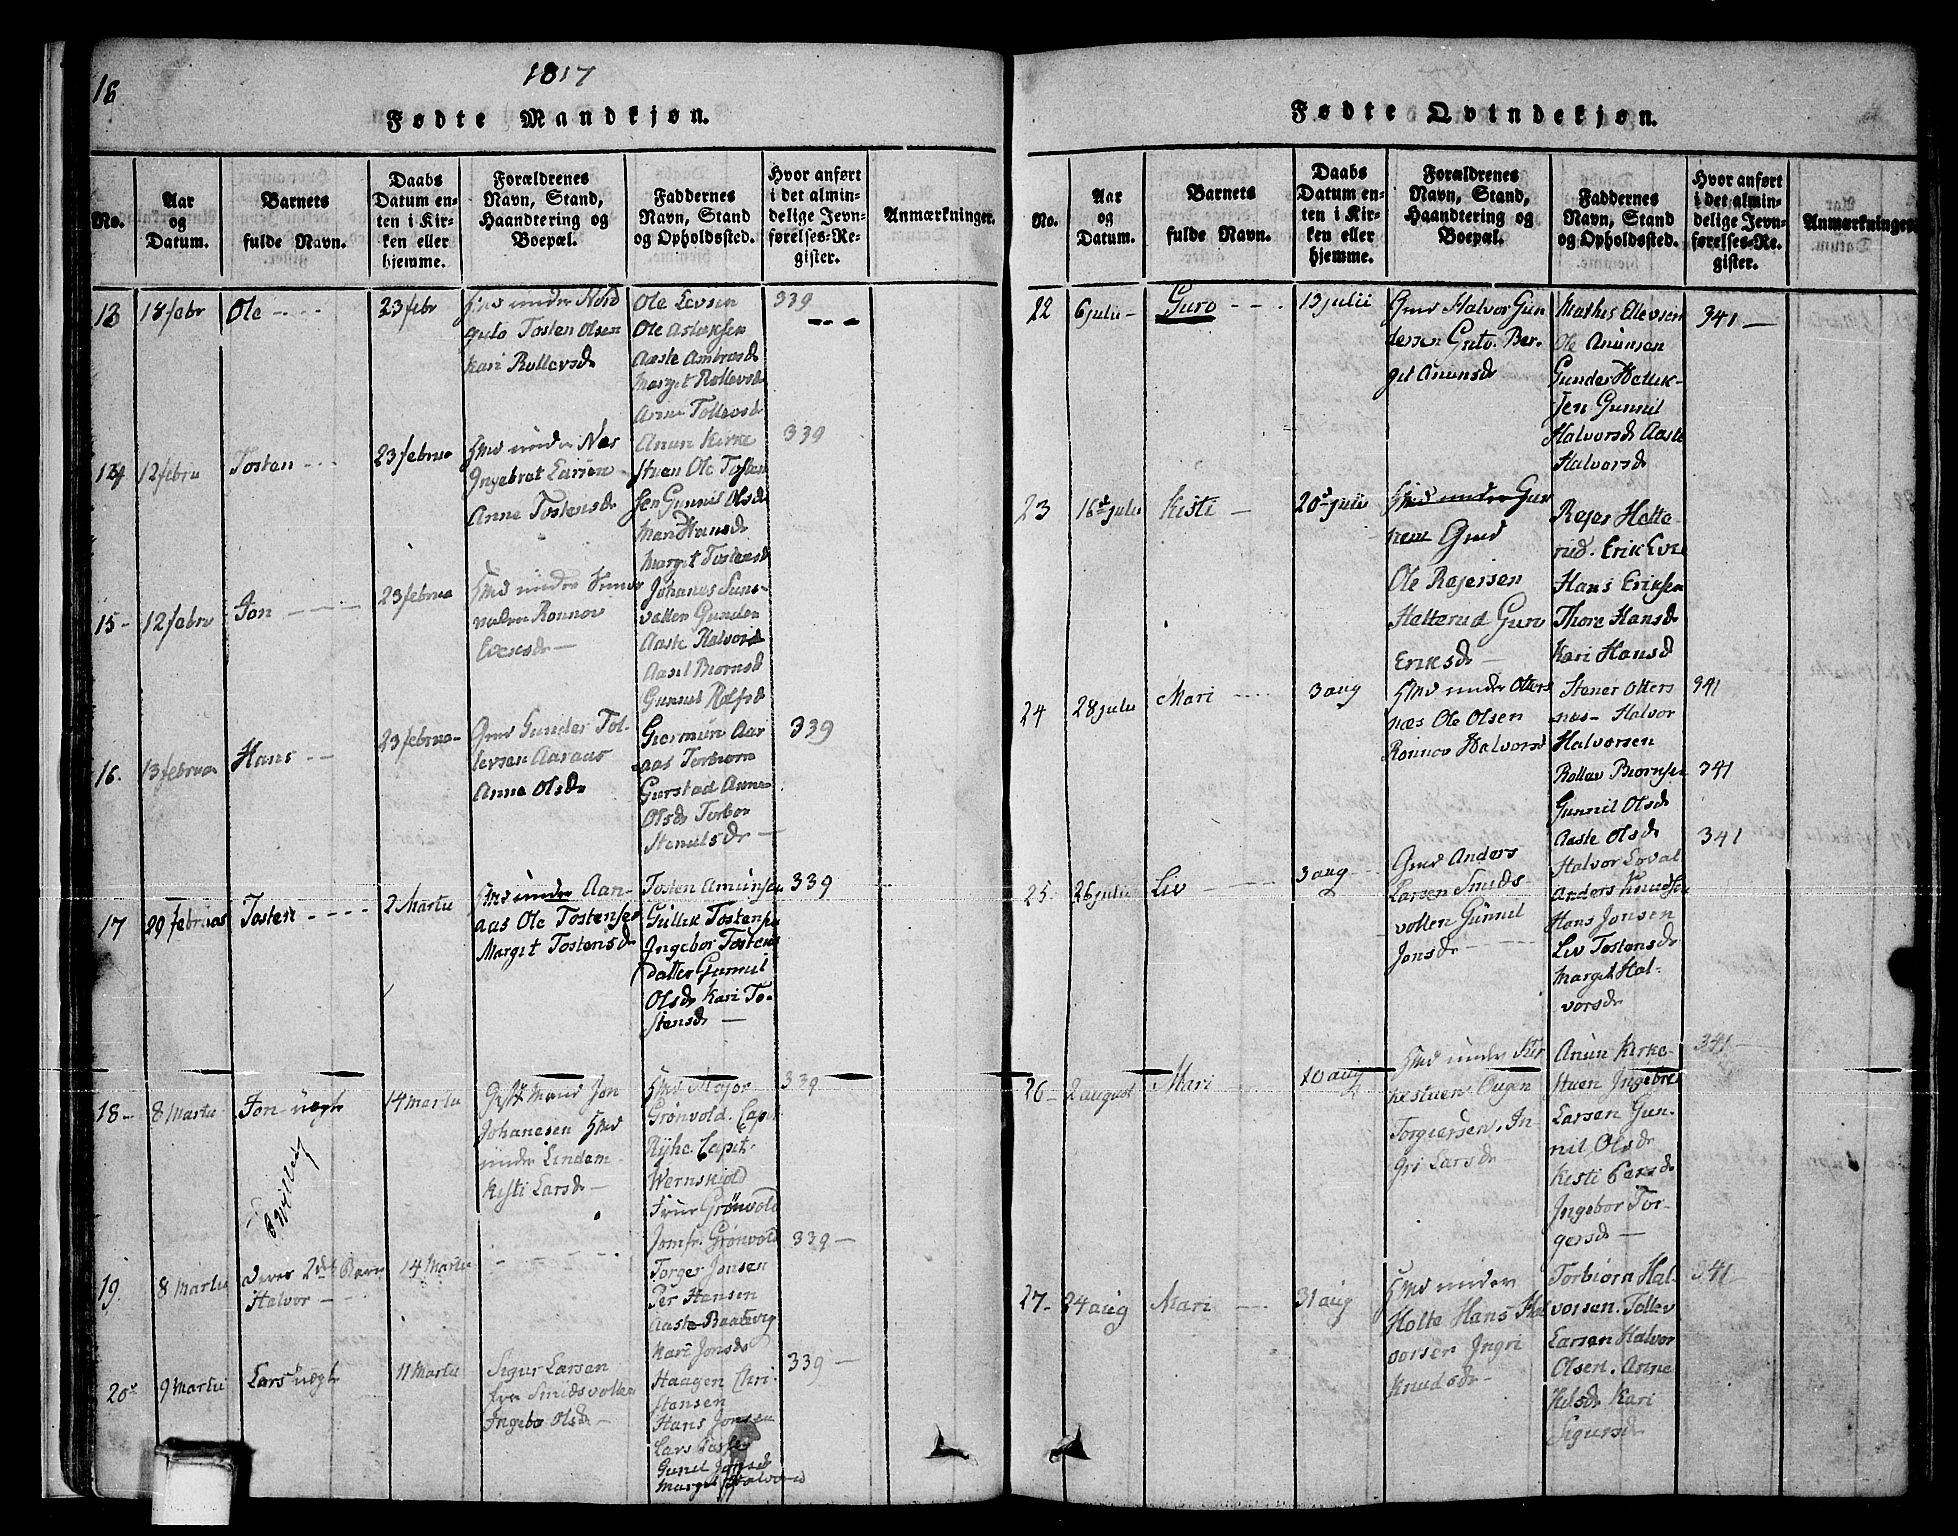 16
1817
Fødte Mandkjøn.
No.
Aar
og
Datum.
Barnets
fulde Navn.
Daabs
Datum en-
ten i Kir-
ken eller
hjemme.
Forældrenes
Navn, Stand,
Haandtering og
Boepæl.
Faddernes
Navn, Stand
og Opholdssted.
Hvor anført
i det almin-
delige Jevn-
førelses-Re-
gister.
Anmærkninger.
13 18 febr Ole 23 febr
under Nord
Tosten Olsen
Kari Rollevsdr
Ole Levsen
Ole Aslaksen
Aaste Ambrosdr
Marget Rollevsdr
Anne Tollevsdr
339
14 12 febru Tosten 23 februa
under Næs
Ingebret Larsen
Anne Tostensdr
Anun Kirke
stuen Ole Tosten
sen Gunnil Olsdr
Mari Hansdr
Marget Tostensdr
339
15 12 febru Jon 23 februa
under
Ronnov
Johanes
vatten Gunder
Aaste Halvorsd
Aasil Biornsd
16. 13 februa Hans 23 februa
Gmd Gunder Tol-
levsen Aaraas
Anne Olsdr
Giermun Aar
aas Torbiorn
Gurstad Anne
Olsdr Torbor
339
17 29 februas Tosten 2 Martii
under Aan-
aas Ole Tostensen
Margit Tostensdr
Tosten Amunsen
Gullik Tostensen
Ingebor Tostens
datter Gunnil
Olsdr Kari To-
stensdr
339
18 8 Martii Jon uægte 14 Martii
Mand Jon
Johanesen
under Lindem
Kisti Larsdr
Major
Grönvold. Capt
Ryhe Capit-
Wernskiold
Frue Grönvold
Jomfr. Grönvold
339
19. 8 Martii 2det Barn 14 Martii
Halvor
Torger Jonsen
Per Hansen
Aaste
Kari Jonsdr
339
20 9 Martii Lars uægte 11 Martii
Sigur Larsen
fra Smidsvollen
Ingebor Olsdr
Haagen Chri-
stensen
Hans Jonsen
Lars
Gunil Jonsd
Marget Halvorsd
339
Fødte Qvindekjøn.
No.
Aar
og
Datum.
Barnets
fulde Navn.
Daabs
Datum en-
ten i Kir-
ken eller
hjemme.
Forældrenes
Navn, Stand,
Haandtering og
Boepæl.
Faddernes
Navn, Stand
og Opholdssted.
Hvor anført
i det almin-
delige Jevn-
førelses-Re-
gister.
Anmærkninger.
22 6 julii Guro 13 julii
Gmd Halvor Gun
dersen Gutv. Ber-
git Anunsdr
Mathis Ellevsen
Ole Anunsen
Gunder Hellik-
sen Gunnil
Halvorsdr Aaste
Halvorsdr
341
23 16 julii Kisti 20 julii
under
Gmd
Ole Rejersen
Halterud Guro
Eriksdr
Rejer Halte-
rud. Erik
Hans Eriksen
Thore Hansdr
Kari Hansd
24 28 julii Mari 3 aug
under Otters
næs Ole Olsen
Ronnov Halvorsd
Stener Otters
næs Halvor
Halvorsen
Rollev Biornsen
Gunnil Olsdr
Aaste Olsdr
341
341
25. 26 julii Liv 3 aug
Gmd Anders
Larsen Smids
vollen Gunnil
Jonsdr
Halvor
Anders Knudsen
Hans Jonsen
Liv Tostensdr
Marget Hal-
vorsdr
341
26 2 august Mari 10 aug
under Kir
kestuen
Torgiersen. In-
gri Larsdr
Anun Kirke-
stuen Ingebre
Larsen Gun-
nil Olsdr
Kisti Persdr
Ingebor Tor-
gersdr
341
27 24 aug Mari 31 aug
under
Holte Hans Hal
vorsen Ingri
Knudsdr
Torbiorn Hal-
vorsen. Tollev
Larsen Halvor
Olsen. Anne
Kari
Sigursd
341